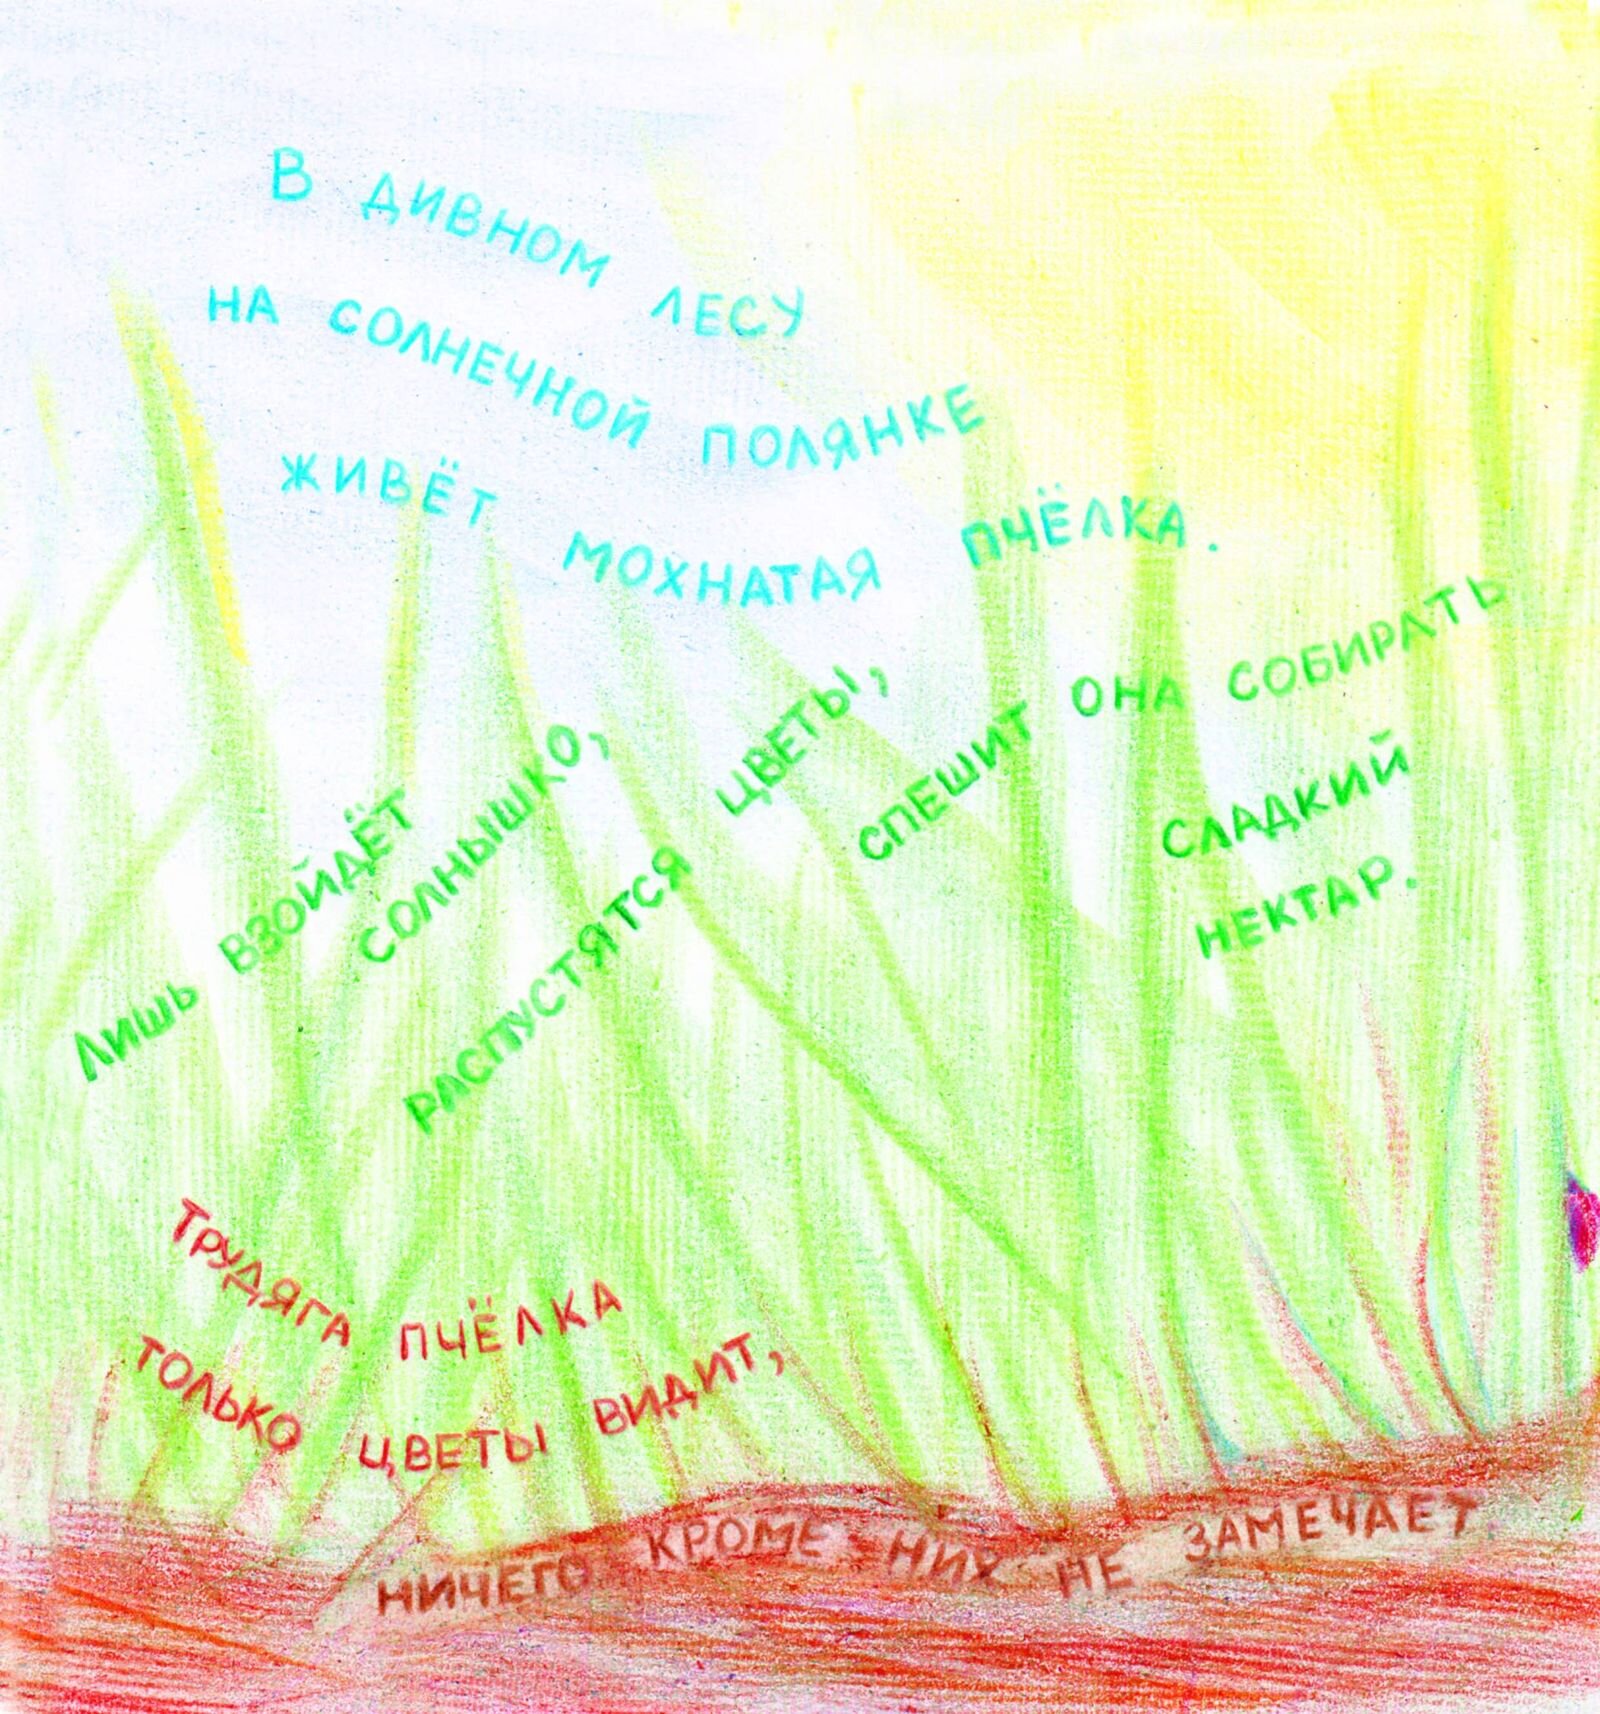 В ДИВНОМ ЛЕСУ
НА СОЛНЕЧНОЙ ПОЛЯНКЕ
ЖИВЁТ МОХНАТАЯ ПЧЁЛКА.
ЛИШЬ ВЗОЙДЁТ
СОЛНЫШКО,
РАСПУСТЯТСЯ ЦВЕТЫ,
СПЕШИТ ОНА СОБИРАТЬ
СЛАДКИЙ
НЕКТАР.
ТРУДЯГА ПЧЁЛКА
ТОЛЬКО ЦВЕТЫ ВИДИТ,
НИЧЕГО КРОМЕ НИХ НЕ ЗАМЕЧАЕТ